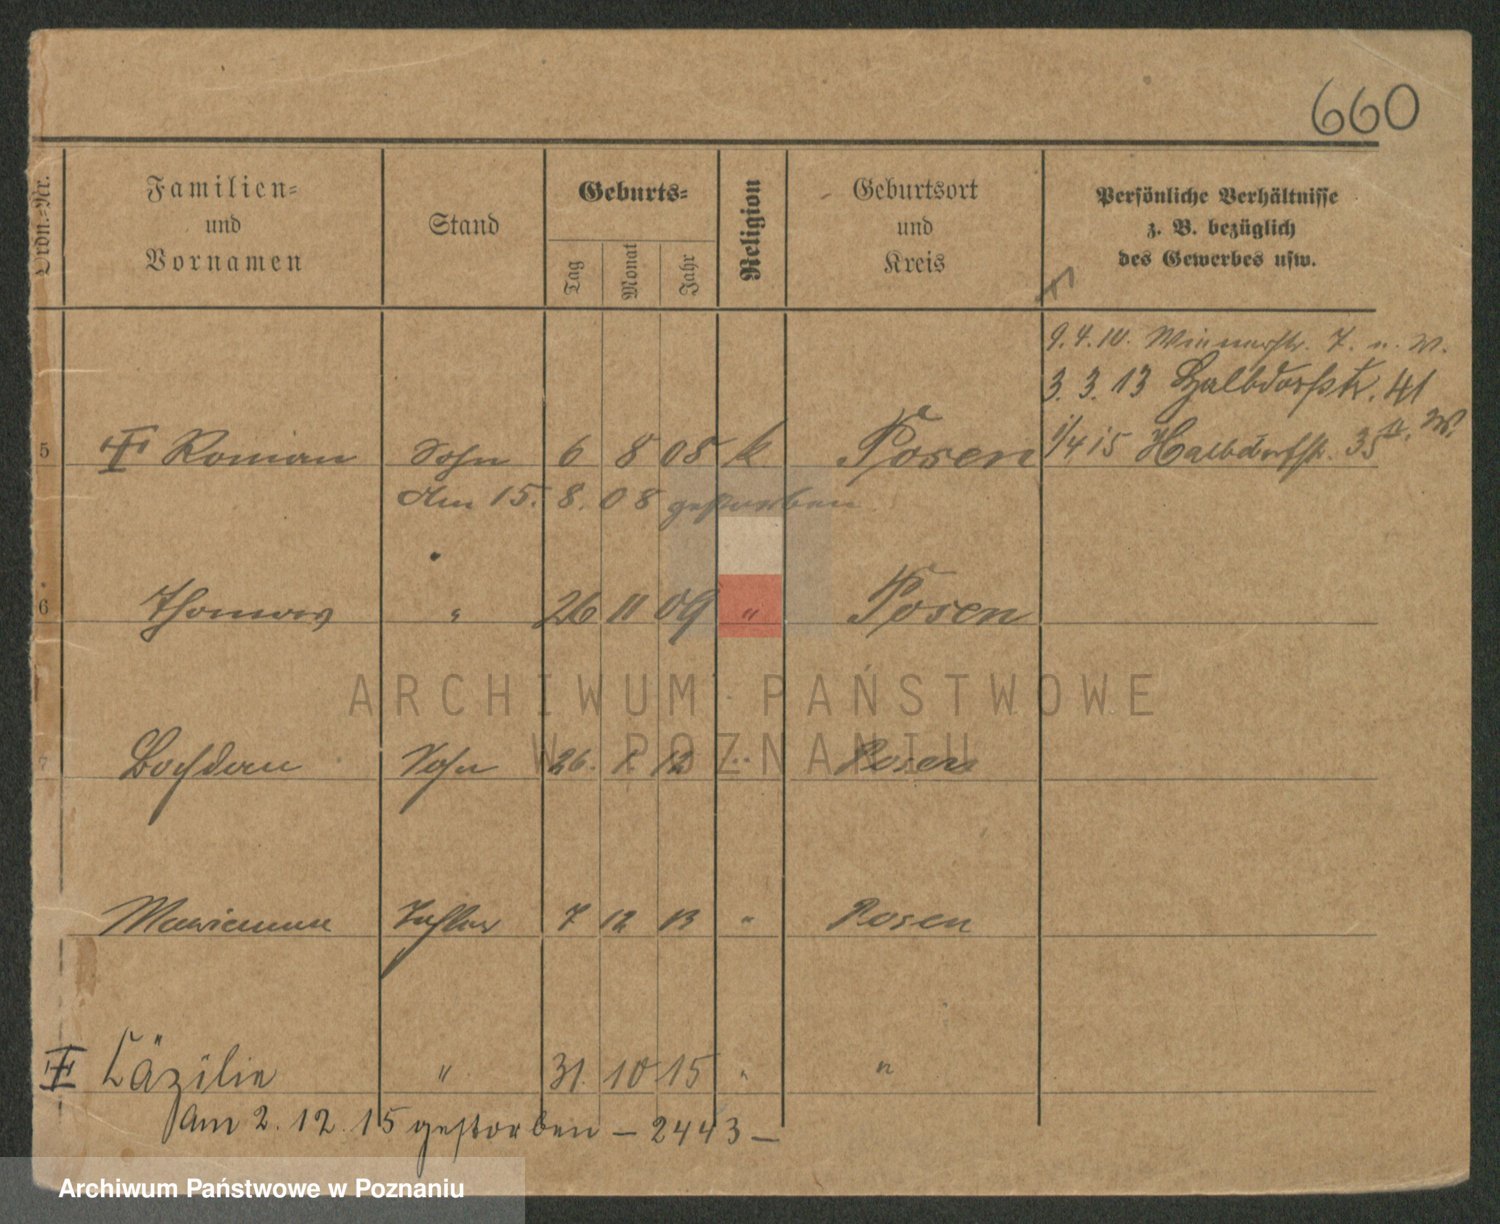 660
Ordn.-Nr.
Familien-
und
Vornamen
Stand
Geburts-
Tag
Monat
Jahr
Religion
Geburtsort
und
Kreis
Persönliche Verhältnisse
z. B. bezüglich
des Gewerbes usw.
9.4.10. 7. u. W.
3.3.13 Halbdorfstr. 41
1/4 15 Halbdorfstr. 35 W.
5 Roman Sohn 6 8 08 k. Posen
Am 15. 8. 08 gestorben
6 Thomas " 26 11 09 " Posen
ARCHIWUM PAŃSTWOWE
W POZNANIU
7 Bohdan Sohn 26. 1. 12 " Posen
Marianna Tochter 7 12 13 " Posen
Cäzilie " 31. 10 15 " "
Am 2. 12. 15 gestorben – 2443 –
Archiwum Państwowe w Poznaniu